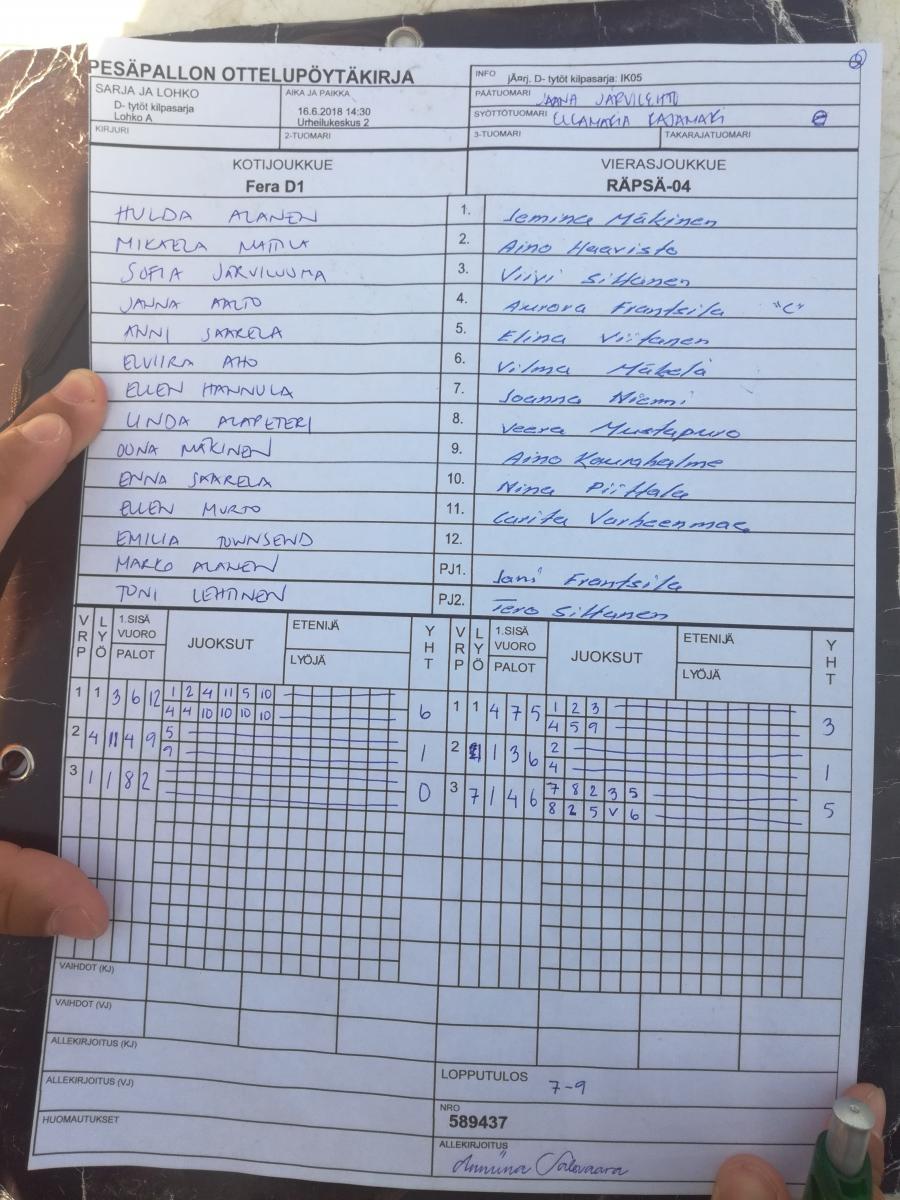 PESÄPALLON OTTELUPÖYTÄKIRJA
INFO jÄ¤rj. D- tytöt kilpasarja: IK05
SARJA JA LOHKO
D- tytöt kilpasarja
Lohko A
AIKA JA PAIKKA
16.6.2018 14:30
Urheilukeskus 2
PÄÄTUOMARI JAANA JÄRVILEHTO
SYÖTTÖTUOMARI ULLAMAIJA KAJAMÄKI
KIRJURI 2-TUOMARI 3-TUOMARI TAKARAJATUOMARI
KOTIJOUKKUE VIERASJOUKKUE
Fera D1 RÄPSÄ-04
HULDA ALANEN 1. Jemina Mäkinen
MIKAELA MATTILA 2. Aino Haavisto
SOFIA JÄRVILUOMA 3. Viivi Siltanen
JANNA AALTO 4. Aurora Frantsila "C"
ANNI SAARELA 5. Elina Viitanen
ELVIIRA AHO 6. Vilma Mäkelä
ELLEN HANNULA 7. Joanna Niemi
LINDA ALAPETERI 8. Veera Mustapuro
OONA MÄKINEN 9. Aino Kourahalme
ENNA SAARELA 10. Nina Piittala
ELLEN MURTO 11. Carita Varheenmaa
EMILIA TOWNSEND 12.
MARKO ALANEN PJ1. Jani Frantsila
TONI LEHTINEN PJ2. Tero Siltanen
VRP LYÖ 1.SISÄ VUORO PALOT JUOKSUT ETENIJÄ LYÖJÄ YHT VRP LYÖ 1.SISÄ VUORO PALOT JUOKSUT ETENIJÄ LYÖJÄ YHT
1 1 3 6 12 1 2 4 11 5 10 6 1 1 4 7 5 1 2 3 3
4 4 10 10 10 10 4 5 9
2 4 11 4 9 5 1 2 1 3 6 2 1
9 4
3 1 1 8 2 0 3 7 1 4 6 7 8 2 3 5 5
8 2 5 V 6
VAIHDOT (KJ)
VAIHDOT (VJ)
ALLEKIRJOITUS (KJ)
ALLEKIRJOITUS (VJ)
LOPPUTULOS 7-9
HUOMAUTUKSET
NRO
589437
ALLEKIRJOITUS
Anniina Salovaara